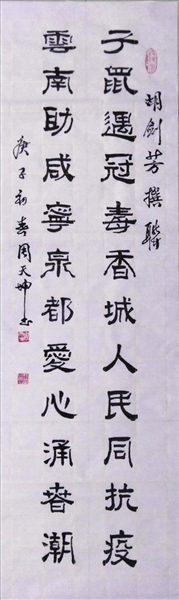 胡劍芳撰聯
子鼠遇冠毒香城人民同抗疫
雲南助咸寧泉都愛心涌春潮
庚子初春周天坤书